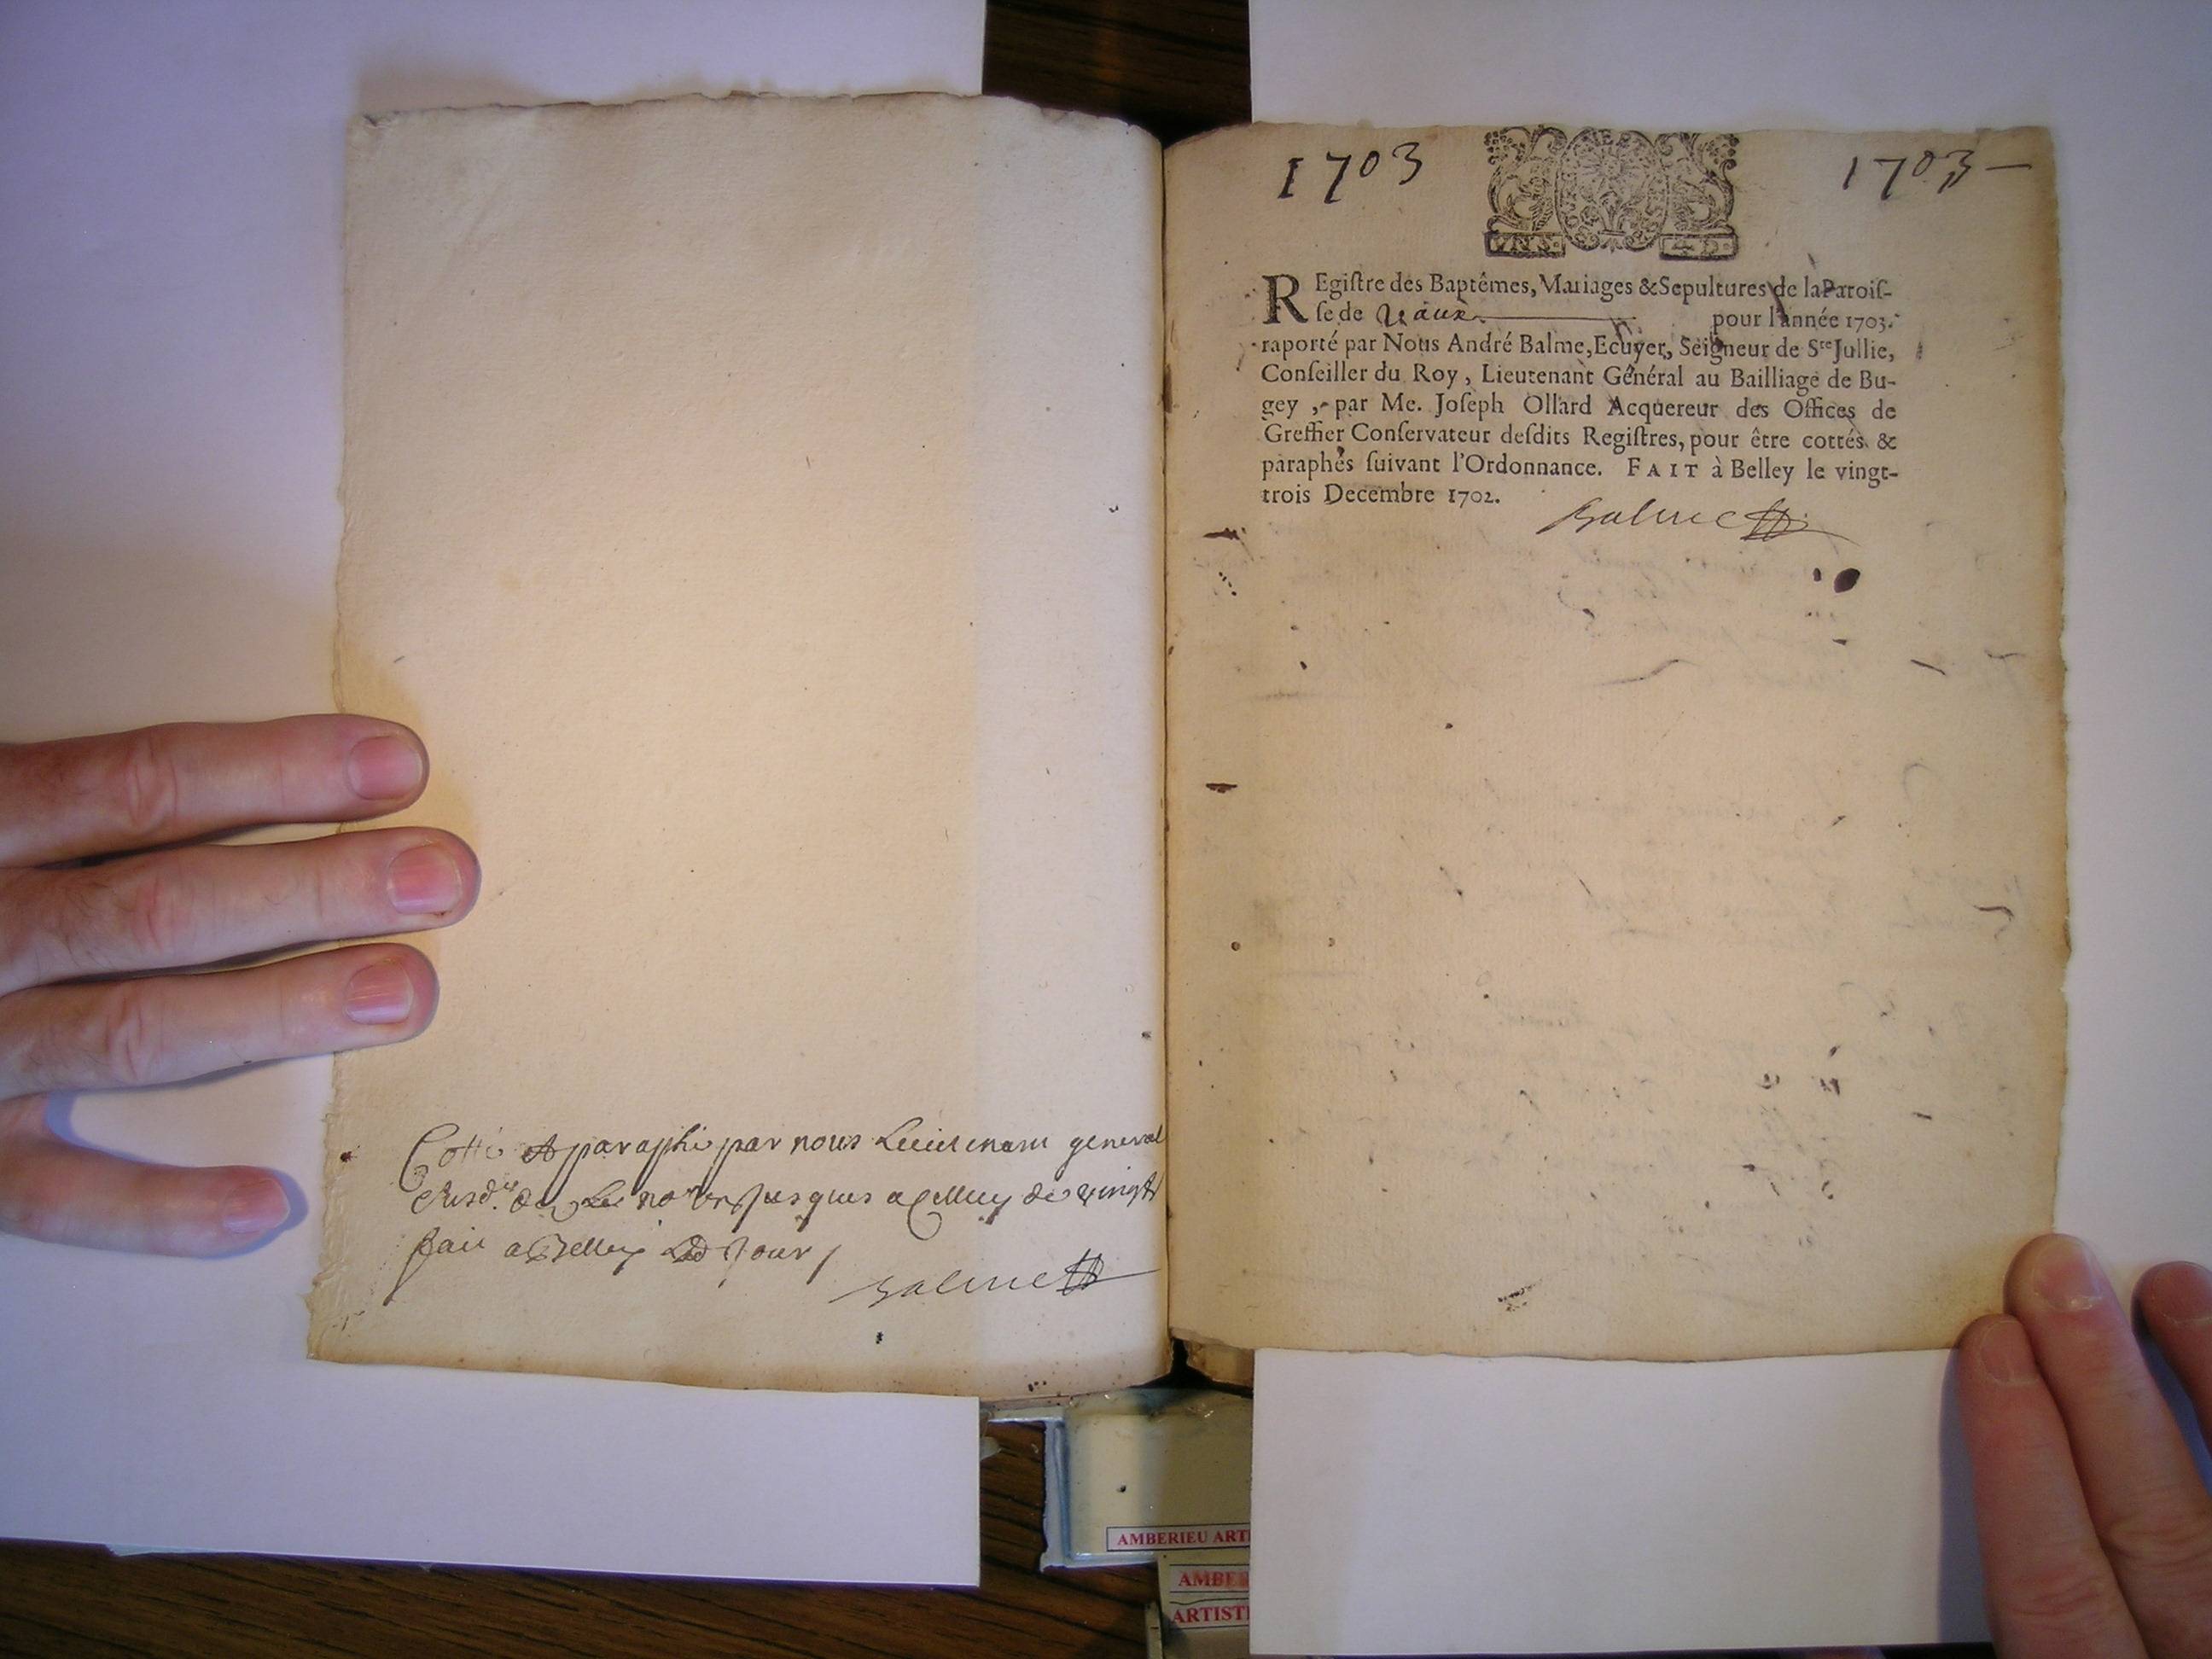 Cotté et paraphé par nous Lieutenant general
susd. de no jusques a Celluy de vingt
fait a Belley Led Jour
Balme
1703
1703
REgiſtre des Baptêmes, Mariages & Sepultures de la Paroiſ-
ſe de Vaux pour l'année 1703.
raporté par Nous André Balme, Ecuyer, Seigneur de Ste Jullie,
Conſeiller du Roy, Lieutenant Général au Bailliage de Bu-
gey, par Me. Joſeph Ollard Acquereur des Offices de
Greffier Conſervateur deſdits Regiſtres, pour être cottés &
paraphés ſuivant l'Ordonnance. FAIT à Belley le vingt-
trois Decembre 1702.
Balme
AMBERIEU ART
AMBE
ARTIST